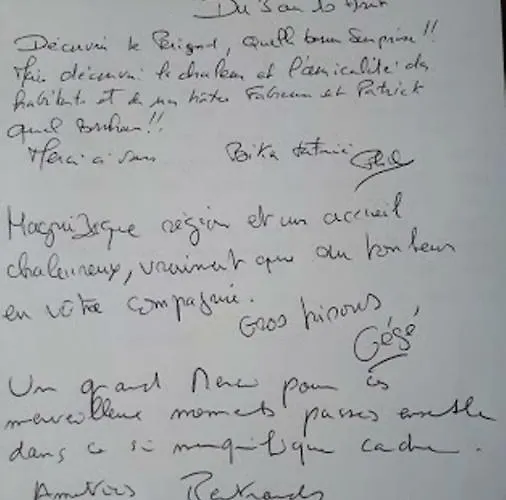 Du 3 au 10 Août
Découvrir le Périgord, quelle bonne surprise !!
Mais découvrir la chaleur et l'amicalité des
habitants et de nos hôtes Fabienne et Patrick
quel bonheur !!
Merci à vous
Magnifique région et un accueil
chaleureux, vraiment que du bonheur
en vôtre compagnie.
Gros bisous
Gégé
Un grand Merci pour ces
merveilleux moments passés ensemble
dans ce si magnifique cadre.
Amitiés